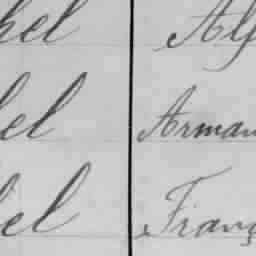 hel Alf
hel Arman
hel Franç